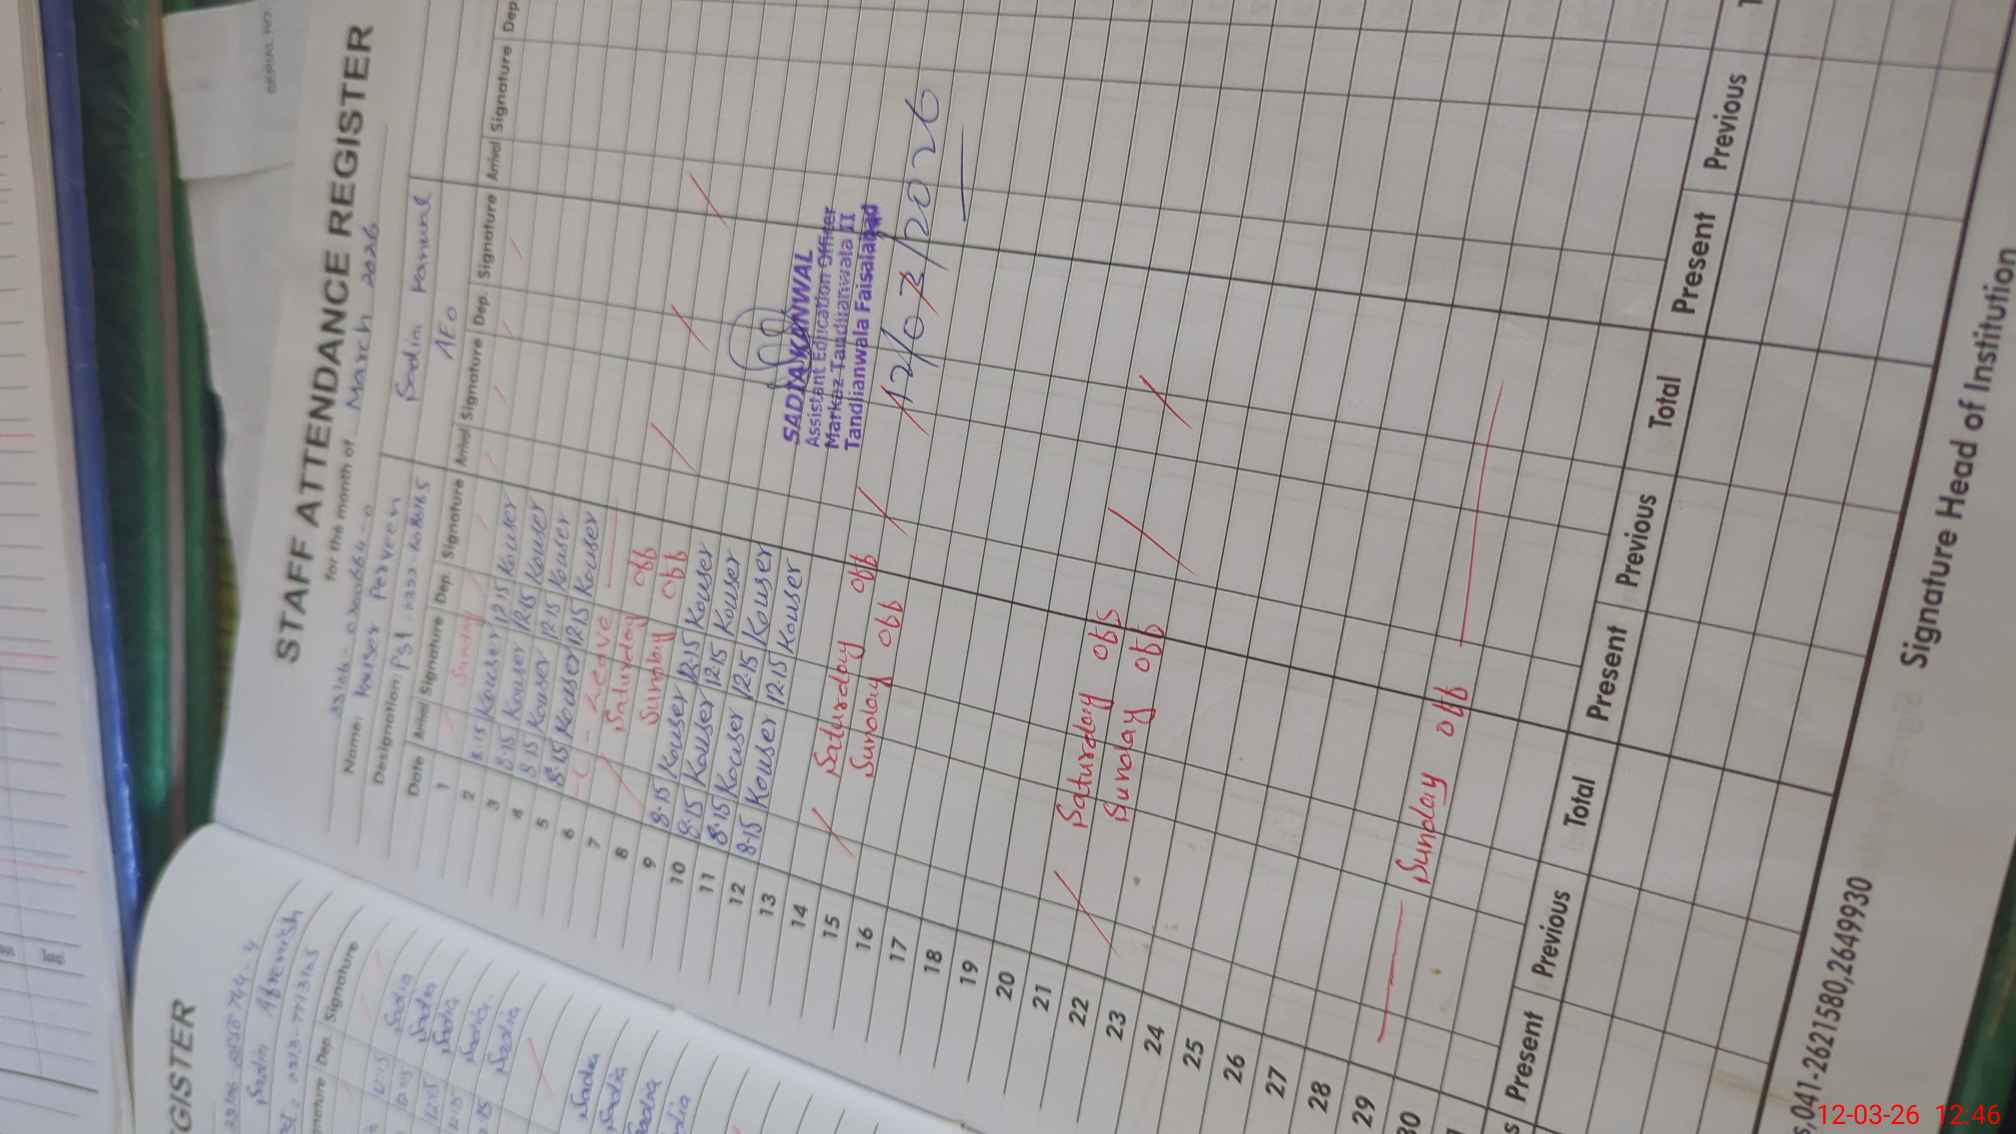 STAFF ATTENDANCE REGISTER
for the month of March 2026
Name: Kouser Perveen
Designation: PST
Sadia Kanwal
AEO
Date Arrivel Signature Dep. Signature Arrivel Signature Dep. Signature Arrivel Signature Dep
1 Sunday
2 8:15 Kouser 12:15 Kouser
3 8:15 Kouser 12:15 Kouser
4 8:15 Kouser 12:15 Kouser
5 8:15 Kouser 12:15 Kouser
6 Leave
7 Saturday off
8 Sunday off
9 8:15 Kouser 12:15 Kouser
10 8:15 Kouser 12:15 Kouser
11 8:15 Kouser 12:15 Kouser
12 8:15 Kouser 12:15 Kouser
13
14 Saturday off
15 Sunday off
16
17
18
19
20
21 Saturday off
22 Sunday off
23
24
25
26
27
28
29 Sunday off
30
SADIA KANWAL
Assistant Education Officer
Markaz Tandlianwala II
Tandlianwala Faisalabad
12/03/2026
Present Previous Total Present Previous Total Present Previous
Signature Head of Institution
041-2621580,2649930
GISTER
Signature Dep. Signature
Sadia
Sadia
Sadia
Sadia
Sadia
Sadia
Sadia
12-03-26 12:46